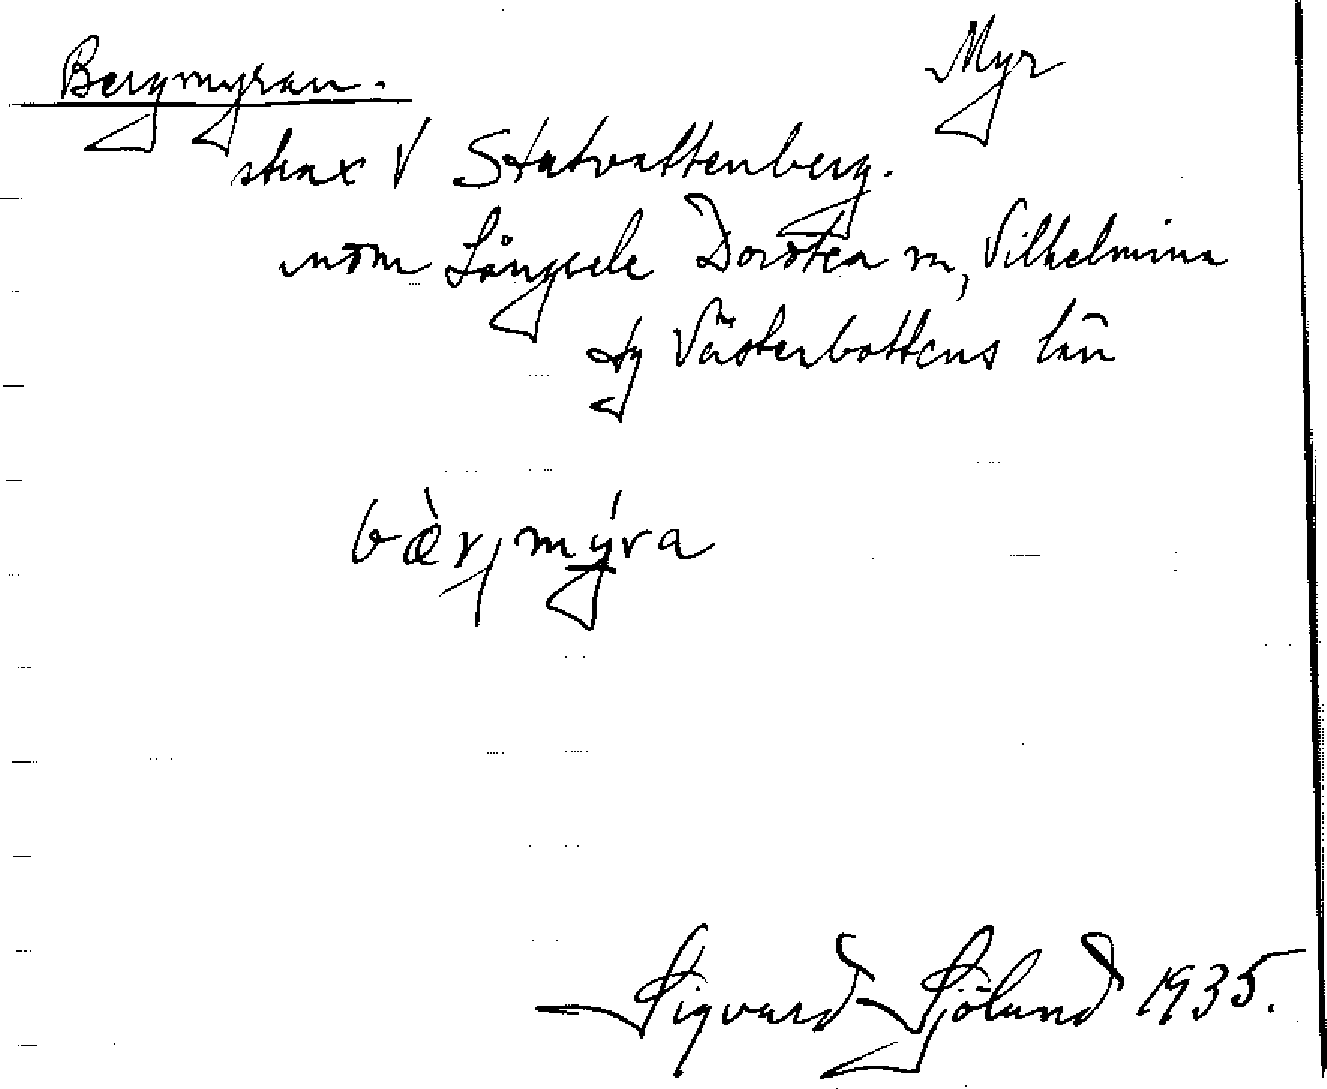 Bergmyran. Myr
strax V Stutvattenberg.
inom Långsele Dorotea sn, Vilhelmina
tg Västerbottens län
bær̀jmýra
Sigvard Sjölund 1935.